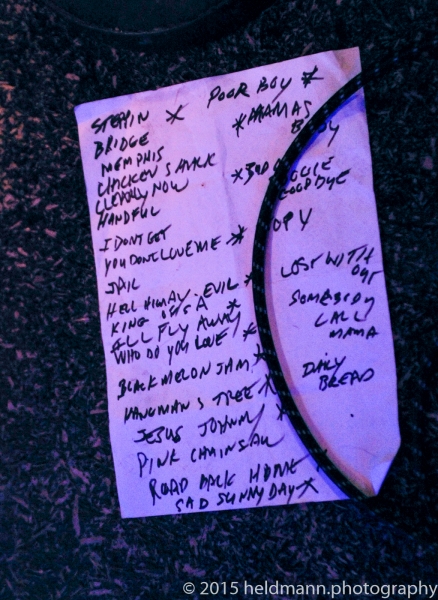 STEPPIN *
BRIDGE
MEMPHIS
CHICKEN SHACK
CLEARLY NOW
HANDFUL
I DONT GET
YOU DONT LOVE ME *
JAIL
HELL HIWAY . EVIL *
KING
ILL FLY AWAY *
WHO DO YOU LOVE *
BLACK MELON JAM *
HANGMANS TREE *
JESUS JOHNNY *
PINK CHAINSAW
ROAD BACK HOME *
SAD SUNNY DAY *
POOR BOY *
*MAMAS
GOODBYE
LOST WITH
OUT
SOMEBODY
CALL
MAMA
DAILY
BREAD
© 2015 heldmann.photography